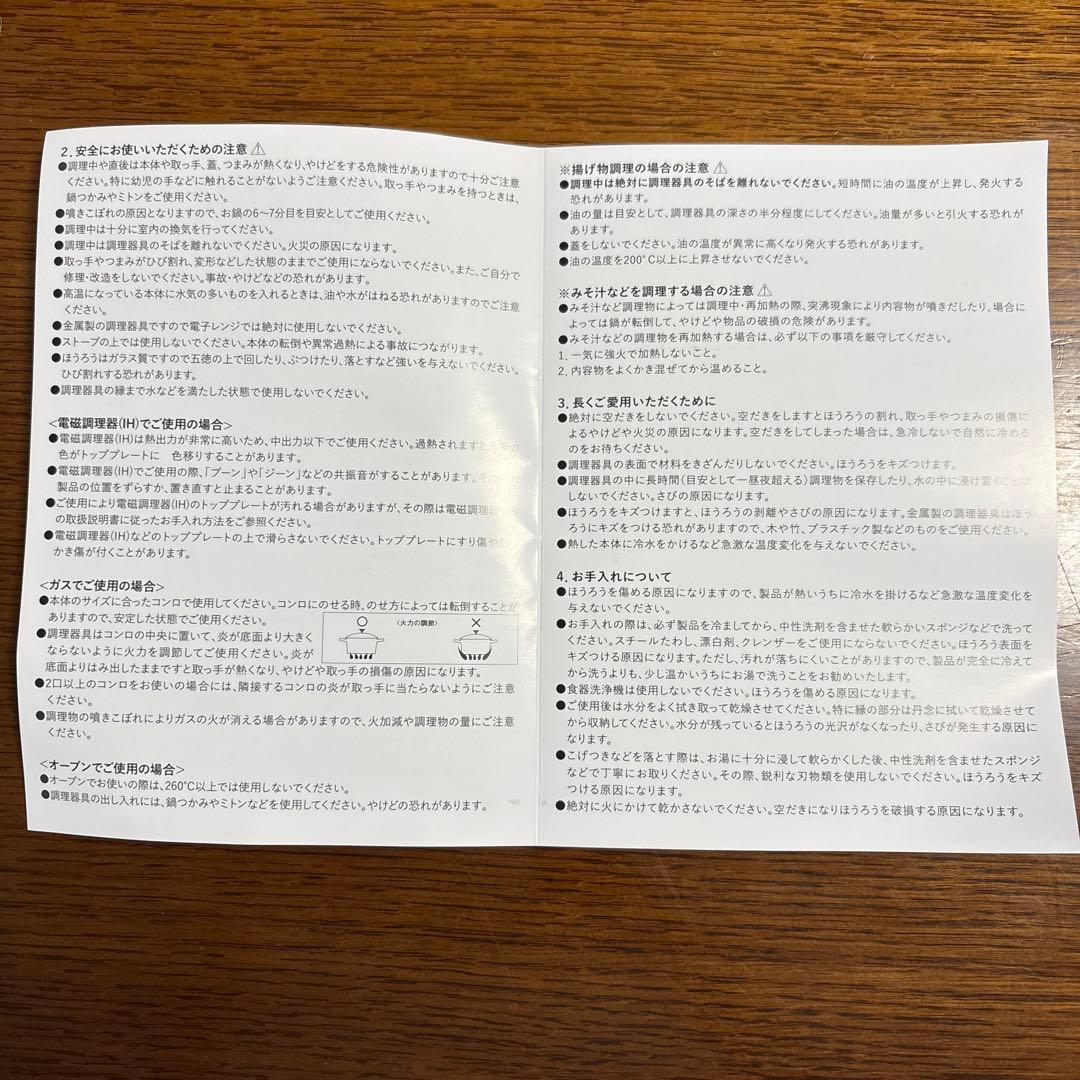 2. 安全にお使いいただくための注意 ⚠
●調理中や直後は本体や取っ手、蓋、つまみが熱くなり、やけどをする危険性がありますので十分ご注意
ください。特に幼児の手などに触れることがないようご注意ください。取っ手やつまみを持つときは、
鍋つかみやミトンをご使用ください。
●噴きこぼれの原因となりますので、お鍋の6〜7分目を目安としてご使用ください。
●調理中は十分に室内の換気を行ってください。
●調理中は調理器具のそばを離れないでください。火災の原因になります。
●取っ手やつまみがひび割れ、変形などした状態のままでご使用にならないでください。また、ご自分で
修理・改造をしないでください。事故・やけどなどの恐れがあります。
●高温になっている本体に水気の多いものを入れるときは、油や水がはねる恐れがありますのでご注意
ください。
●金属製の調理器具ですので電子レンジでは絶対に使用しないでください。
●ストーブの上では使用しないでください。本体の転倒や異常過熱による事故につながります。
●ほうろうはガラス質ですので五徳の上で回したり、ぶつけたり、落とすなど強いを与えないでください。
ひび割れする恐れがあります。
●調理器具の縁まで水などを満たした状態で使用しないでください。
<電磁調理器(IH)でご使用の場合>
●電磁調理器(IH)は熱出力が非常に高いため、中出力以下でご使用ください。過熱されますと
色がトッププレートに 色移りすることがあります。
●電磁調理器(IH)でご使用の際、「ブーン」や「ジーン」などの共振音がすることがあります。その
製品の位置をずらすか、置き直すと止まることがあります。
●ご使用により電磁調理器(IH)のトッププレートが汚れる場合がありますが、その際は電磁調理器
の取扱説明書に従ったお手入れ方法をご参照ください。
●電磁調理器(IH)などのトッププレートの上で滑らさないでください。トッププレートにすり傷や
かき傷が付くことがあります。
<ガスでご使用の場合>
●本体のサイズに合ったコンロで使用してください。コンロにのせる時、のせ方によっては転倒することが
ありますので、安定した状態でご使用ください。
●調理器具はコンロの中央に置いて、炎が底面より大きく
ならないように火力を調節してご使用ください。炎が
底面よりはみ出したままですと取っ手が熱くなり、やけどや取っ手の損傷の原因になります。
○ <火力の調節> ×
●2口以上のコンロをお使いの場合には、隣接するコンロの炎が取っ手に当たらないようにご注意
ください。
●調理物の噴きこぼれによりガスの火が消える場合がありますので、火加減や調理物の量にご注意
ください。
<オーブンでご使用の場合>
●オーブンでお使いの際は、260℃以上では使用しないでください。
●調理器具の出し入れには、鍋つかみやミトンなどを使用してください。やけどの恐れがあります。
※揚げ物調理の場合の注意 ⚠
●調理中は絶対に調理器具のそばを離れないでください。短時間に油の温度が上昇し、発火する
恐れがあります。
●油の量は目安として、調理器具の深さの半分程度にしてください。油量が多いと引火する恐れが
あります。
●蓋をしないでください。油の温度が異常に高くなり発火する恐れがあります。
●油の温度を200℃以上に上昇させないでください。
※みそ汁などを調理する場合の注意 ⚠
●みそ汁など調理物によっては調理中・再加熱の際、突沸現象により内容物が噴きだしたり、場合に
よっては鍋が転倒して、やけどや物品の破損の危険があります。
●みそ汁などの調理物を再加熱する場合は、必ず以下の事項を厳守してください。
1. 一気に強火で加熱しないこと。
2. 内容物をよくかき混ぜてから温めること。
3. 長くご愛用いただくために
●絶対に空だきをしないでください。空だきをしますとほうろうの割れ、取っ手やつまみの損傷に
よるやけどや火災の原因になります。空だきをしてしまった場合は、急冷しないで自然に冷める
のをお待ちください。
●調理器具の表面で材料をきざんだりしないでください。ほうろうをキズつけます。
●調理器具の中に長時間(目安として一昼夜超える)調理物を保存したり、水の中に浸け置くことは
しないでください。さびの原因になります。
●ほうろうをキズつけますと、ほうろうの剥離やさびの原因になります。金属製の調理器具はほう
ろうにキズをつける恐れがありますので、木や竹、プラスチック製などのものをご使用ください。
●熱した本体に冷水をかけるなど急激な温度変化を与えないでください。
4. お手入れについて
●ほうろうを傷める原因になりますので、製品が熱いうちに冷水を掛けるなど急激な温度変化を
与えないでください。
●お手入れの際は、必ず製品を冷ましてから、中性洗剤を含ませた軟らかいスポンジなどで洗って
ください。スチールたわし、漂白剤、クレンザーをご使用にならないでください。ほうろう表面を
キズつける原因になります。ただし、汚れが落ちにくいことがありますので、製品が完全に冷えて
から洗うよりも、少し温かいうちにお湯で洗うことをお勧めいたします。
●食器洗浄機は使用しないでください。ほうろうを傷める原因になります。
●ご使用後は水分をよく拭き取って乾燥させてください。特に縁の部分は丹念に拭いて乾燥させて
から収納してください。水分が残っているとほうろうの光沢がなくなったり、さびが発生する原因に
なります。
●こげつきなどを落とす際は、お湯に十分に浸して軟らかくした後、中性洗剤を含ませたスポンジ
などで丁寧にお取りください。その際、鋭利な刃物類を使用しないでください。ほうろうをキズ
つける原因になります。
●絶対に火にかけて乾かさないでください。空だきになりほうろうを破損する原因になります。